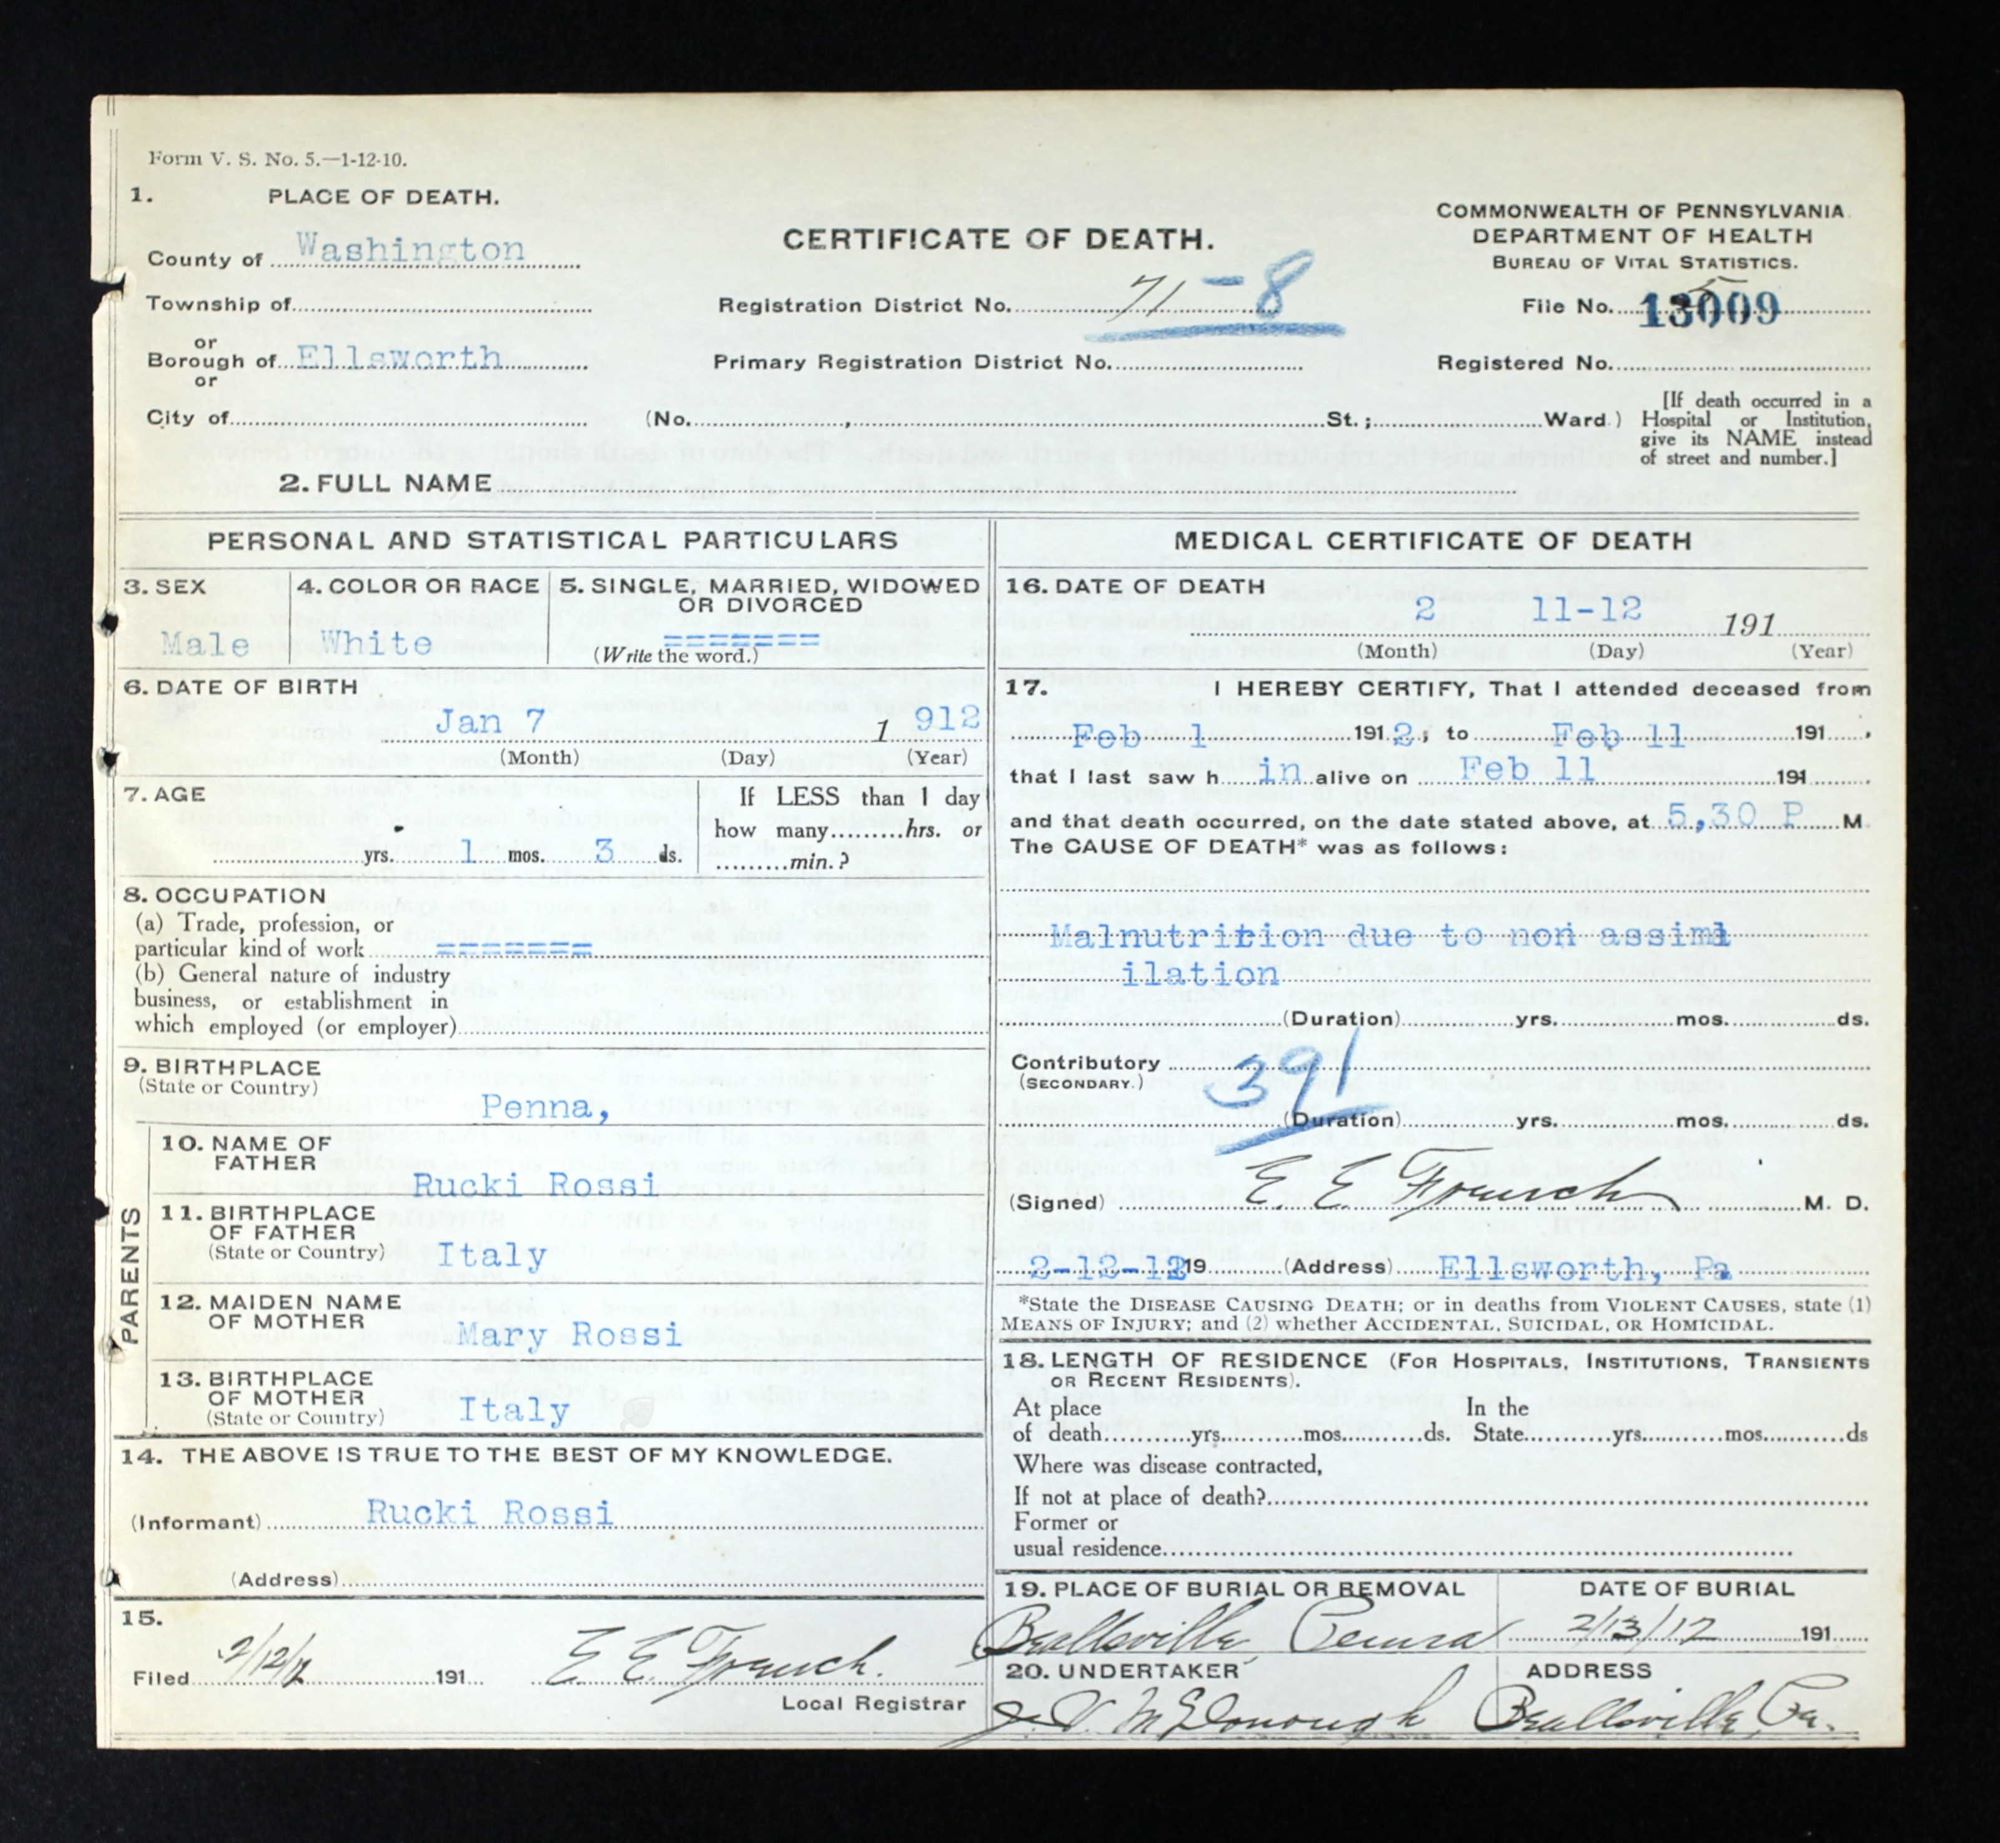 Form V. S. No. 5.—1-12-10.
1. PLACE OF DEATH.
County of Washington
Township of
or
Borough of Ellsworth
or
City of
CERTIFICATE OF DEATH.
Registration District No. 71-8
Primary Registration District No.
(No. , St.; Ward.)
COMMONWEALTH OF PENNSYLVANIA.
DEPARTMENT OF HEALTH
BUREAU OF VITAL STATISTICS.
File No. 13009
Registered No.
[If death occurred in a
Hospital or Institution,
give its NAME instead
of street and number.]
2. FULL NAME
PERSONAL AND STATISTICAL PARTICULARS
3. SEX
Male
4. COLOR OR RACE
White
5. SINGLE, MARRIED, WIDOWED
OR DIVORCED
=======
(Write the word.)
6. DATE OF BIRTH
Jan 7 1 912
(Month) (Day) (Year)
7. AGE
yrs. 1 mos. 3 ds.
If LESS than 1 day
how many........hrs. or
........min.?
8. OCCUPATION
(a) Trade, profession, or
particular kind of work =======
(b) General nature of industry
business, or establishment in
which employed (or employer)
9. BIRTHPLACE
(State or Country)
Penna,
PARENTS
10. NAME OF
FATHER
Rucki Rossi
11. BIRTHPLACE
OF FATHER
(State or Country)
Italy
12. MAIDEN NAME
OF MOTHER
Mary Rossi
13. BIRTHPLACE
OF MOTHER
(State or Country)
Italy
14. THE ABOVE IS TRUE TO THE BEST OF MY KNOWLEDGE.
(Informant) Rucki Rossi
(Address)
15.
Filed 2/12/12 191 E E. French.
Local Registrar
MEDICAL CERTIFICATE OF DEATH
16. DATE OF DEATH
2 11-12 191
(Month) (Day) (Year)
17. I HEREBY CERTIFY, That I attended deceased from
Feb 1 1912, to Feb 11 191 ,
that I last saw h in alive on Feb 11 191
and that death occurred, on the date stated above, at 5,30 P M.
The CAUSE OF DEATH* was as follows:
Malnutrition due to non assimi
ilation
(Duration) yrs. mos. ds.
Contributory
(SECONDARY.)
391
(Duration) yrs. mos. ds.
(Signed) E. E. French M. D.
2-12-12 19 (Address) Ellsworth, Pa
*State the DISEASE CAUSING DEATH; or in deaths from VIOLENT CAUSES, state (1)
MEANS OF INJURY; and (2) whether ACCIDENTAL, SUICIDAL, OR HOMICIDAL.
18. LENGTH OF RESIDENCE (FOR HOSPITALS, INSTITUTIONS, TRANSIENTS
OR RECENT RESIDENTS).
At place In the
of death yrs. mos. ds. State yrs. mos. ds
Where was disease contracted,
If not at place of death?
Former or
usual residence
19. PLACE OF BURIAL OR REMOVAL
Beallsville Penna
DATE OF BURIAL
2/13/12 191
20. UNDERTAKER
McDonough
ADDRESS
Beallsville, Pa.